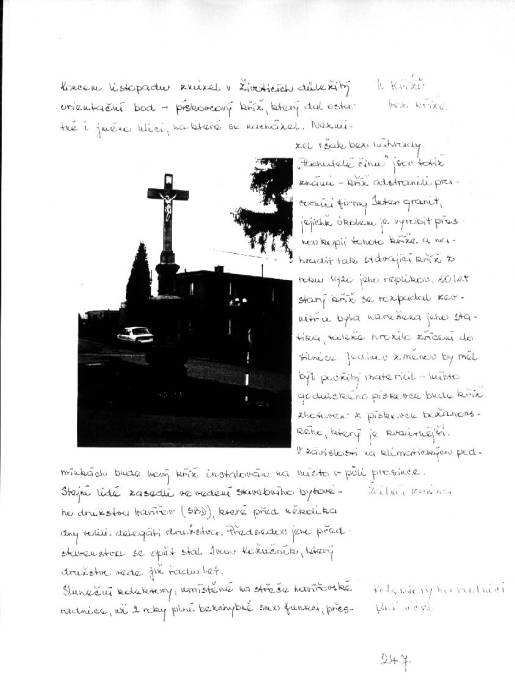 Koncem listopadu zmizel v Životicích důležitý
orientační bod – pískovcový kříž, který dal osta-
tně i jméno ulici, na které se nacházel. Nezmi-
zel však bez náhrady.
"Pachatelé činu" jsou totiž
známi – kříž odstranili pra-
covníci firmy Inter granit,
jejichž úkolem je vyrobit přes-
nou kopii tohoto kříže a na-
hradit tak stávající kříž z
roku jeho replikou. 80 let
starý kříž se rozpadal zev-
nitř a byla narušena jeho sta-
tika, takže hrozilo zřícení do
silnice. Jedinou změnou by měl
být použitý materiál – místo
godulského pískovce bude kříž
zhotoven z pískovce božanov-
ského, který je kvalitnější.
V závislosti na klimatických pod-
mínkách bude nový kříž instalován na místo v půli prosince.
Stejní lidé zasedli ve vedení stavebního bytové-
ho družstva Havířov (SBD), které před několika
dny volili delegáti družstva. Předsedou jeho před-
stavenstva se opět stal Ivan Kožučník, který
družstvo vede již řadu let.
Sluneční kolektory, umístěné na střeše havířovské
radnice, už 2 roky plní bezchybně svou funkci, přes-
U Kříže
bez kříže
Kolektory na radnici
plní účel
247